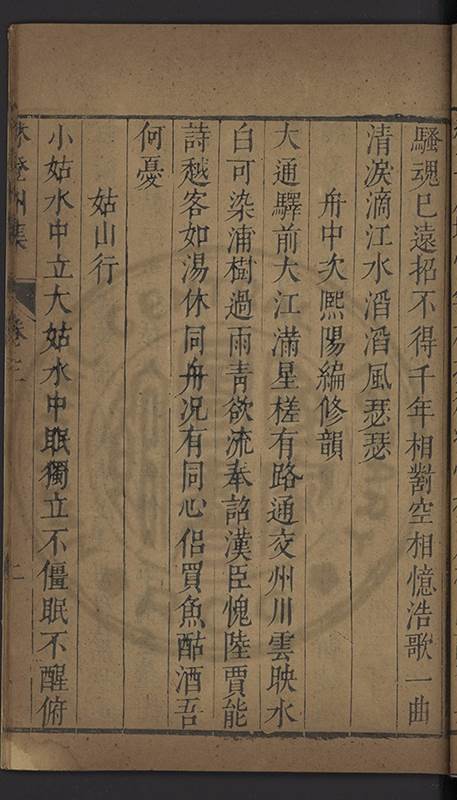 騷魂已遠招不得千年相對空相憶浩歌一曲
清淚滴江水滔滔風瑟瑟
舟中次熙陽編修韻
大通驛前大江滿星槎有路通交州川雲映水
白可染浦樹過雨靑欲流奉詔漢臣愧陸賈能
詩越客如湯休同舟况有同心侶買魚酤酒吾
何憂
姑山行
小姑水中立大姑水中眠獨立不僵眠不醒俯
州集
卷三
二